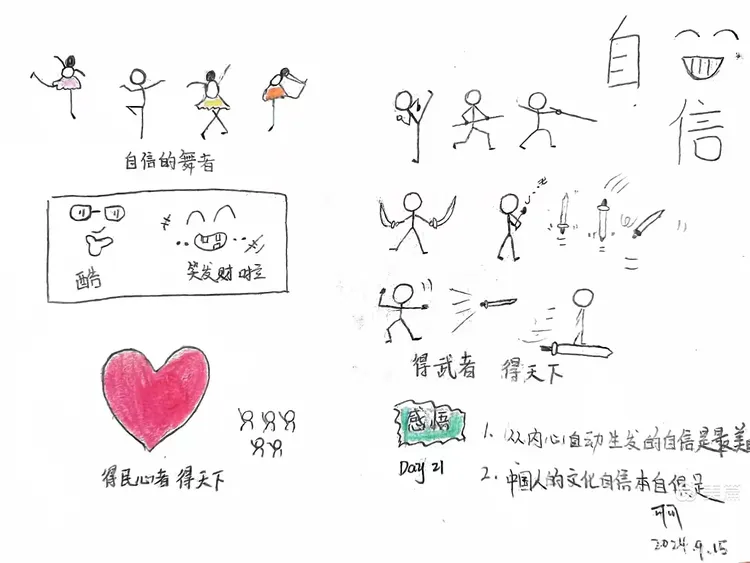 自
信
自信的舞者
酷
笑发财啦
得武者 得天下
得民心者得天下
感悟
Day 21
1. 从内心自动生发的自信是最美的
2. 中国人的文化自信本自俱足
2024.9.15